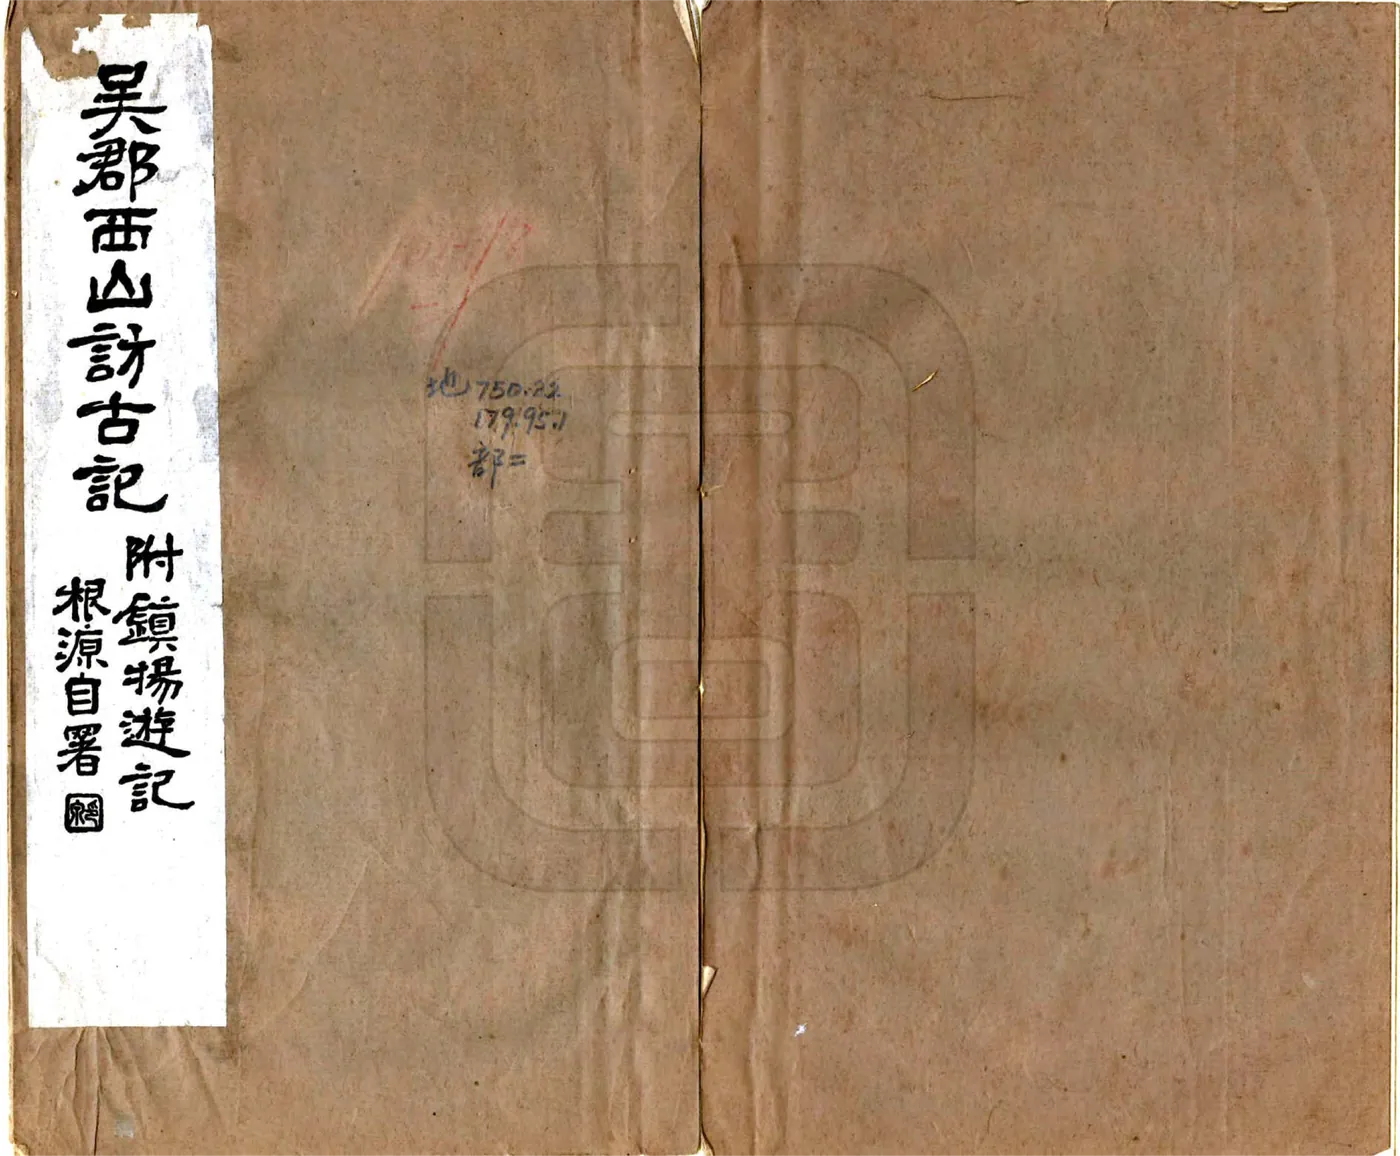 吳郡西山訪古記
附鎮揚遊記
根源自署
地750.22
179.95.1
部二